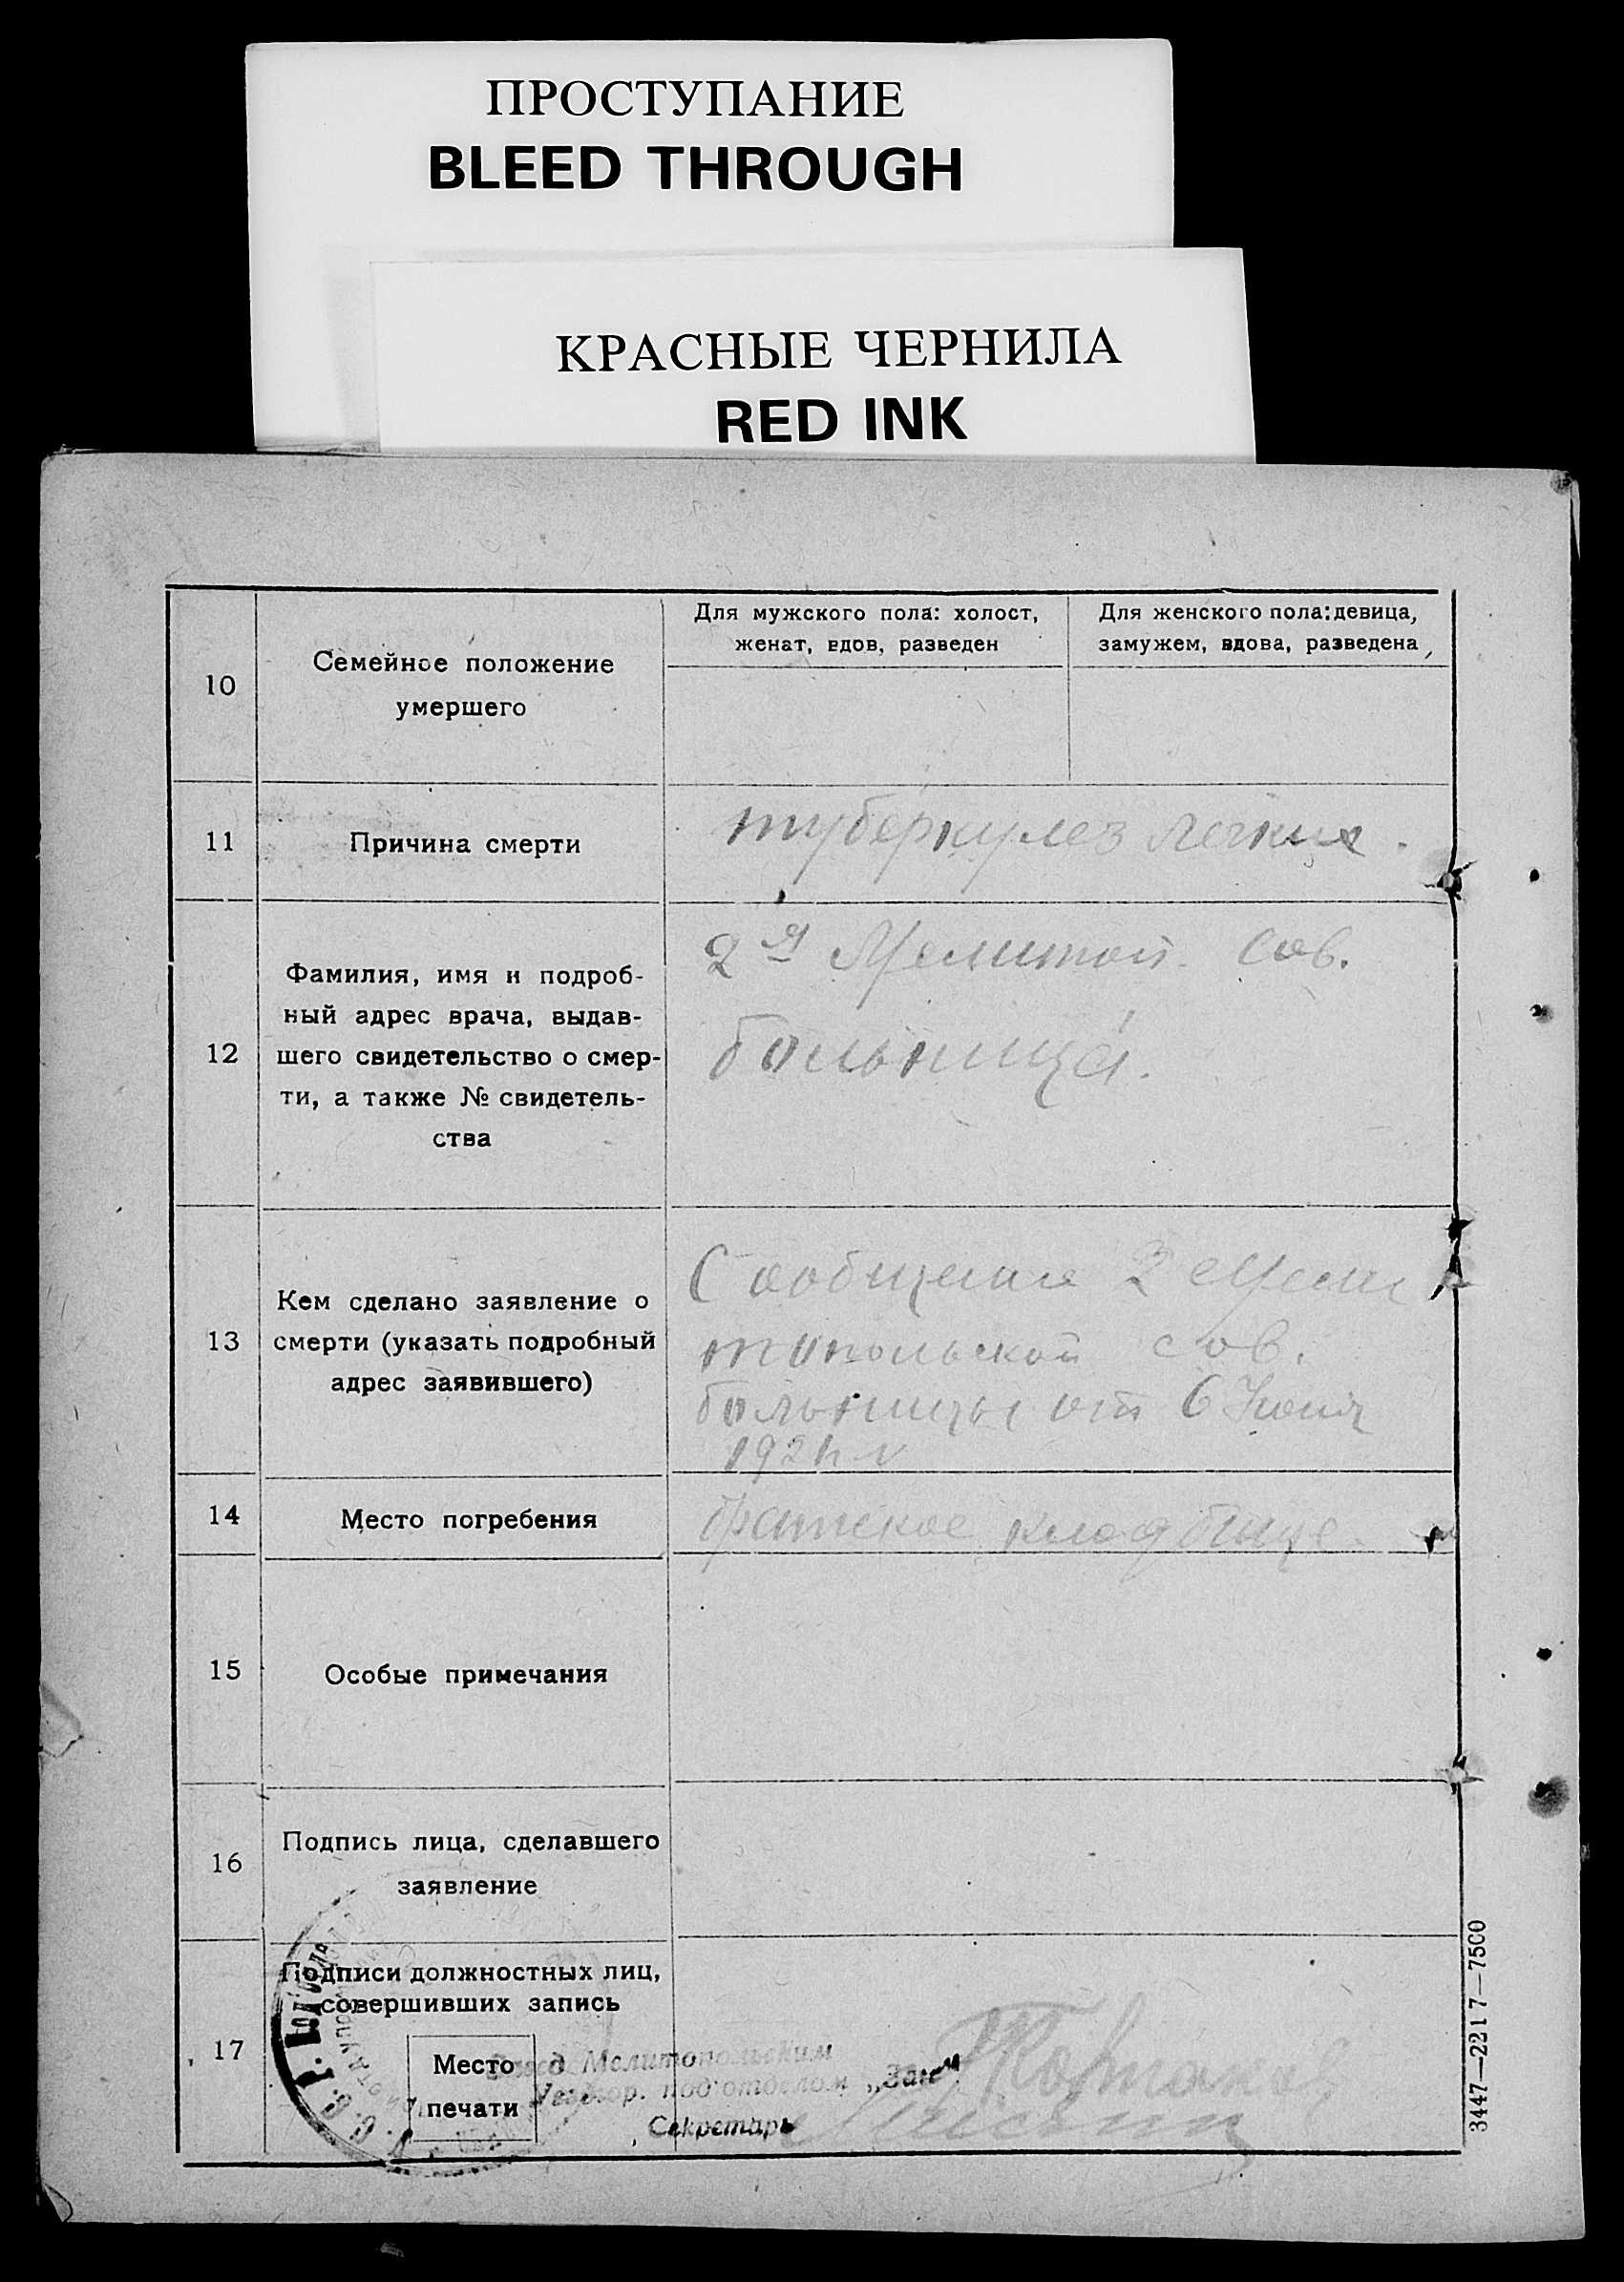 ПРОСТУПАНИЕ
BLEED THROUGH
КРАСНЫЕ ЧЕРНИЛА
RED INK
10
Семейное положение
умершего
Для мужского пола: холост,
женат, вдов, разведен
Для женского пола: девица,
замужем, вдова, разведена
11
Причина смерти
туберкулез легких.
12
Фамилия, имя и подроб-
ный адрес врача, выдав-
шего свидетельство о смер-
ти, а также № свидетель-
ства
2я Мелитоп. Сов.
больница.
13
Кем сделано заявление о
смерти (указать подробный
адрес заявившего)
Сообщение 2 Мели
топольской сов.
больницы от 6 Июня
192
14
Место погребения
братское кладбище.
15
Особые примечания
16
Подпись лица, сделавшего
заявление
17
Подписи должностных лиц,
совершивших запись
Место
печати
Мелитопольским
подотделом „Загс"
Секретарь
3447—2217—7500